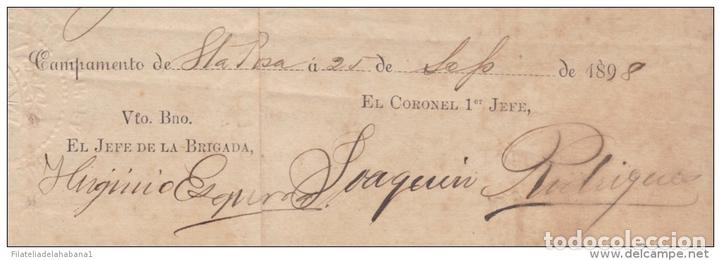 Campamento de Sta Rosa á 25 de Sep. de 1898
EL CORONEL 1er JEFE,
Vto. Bno.
EL JEFE DE LA BRIGADA,
Higinio Esquerra Joaquin Rodriguez
Filateliadelahabana1
todocoleccion.net